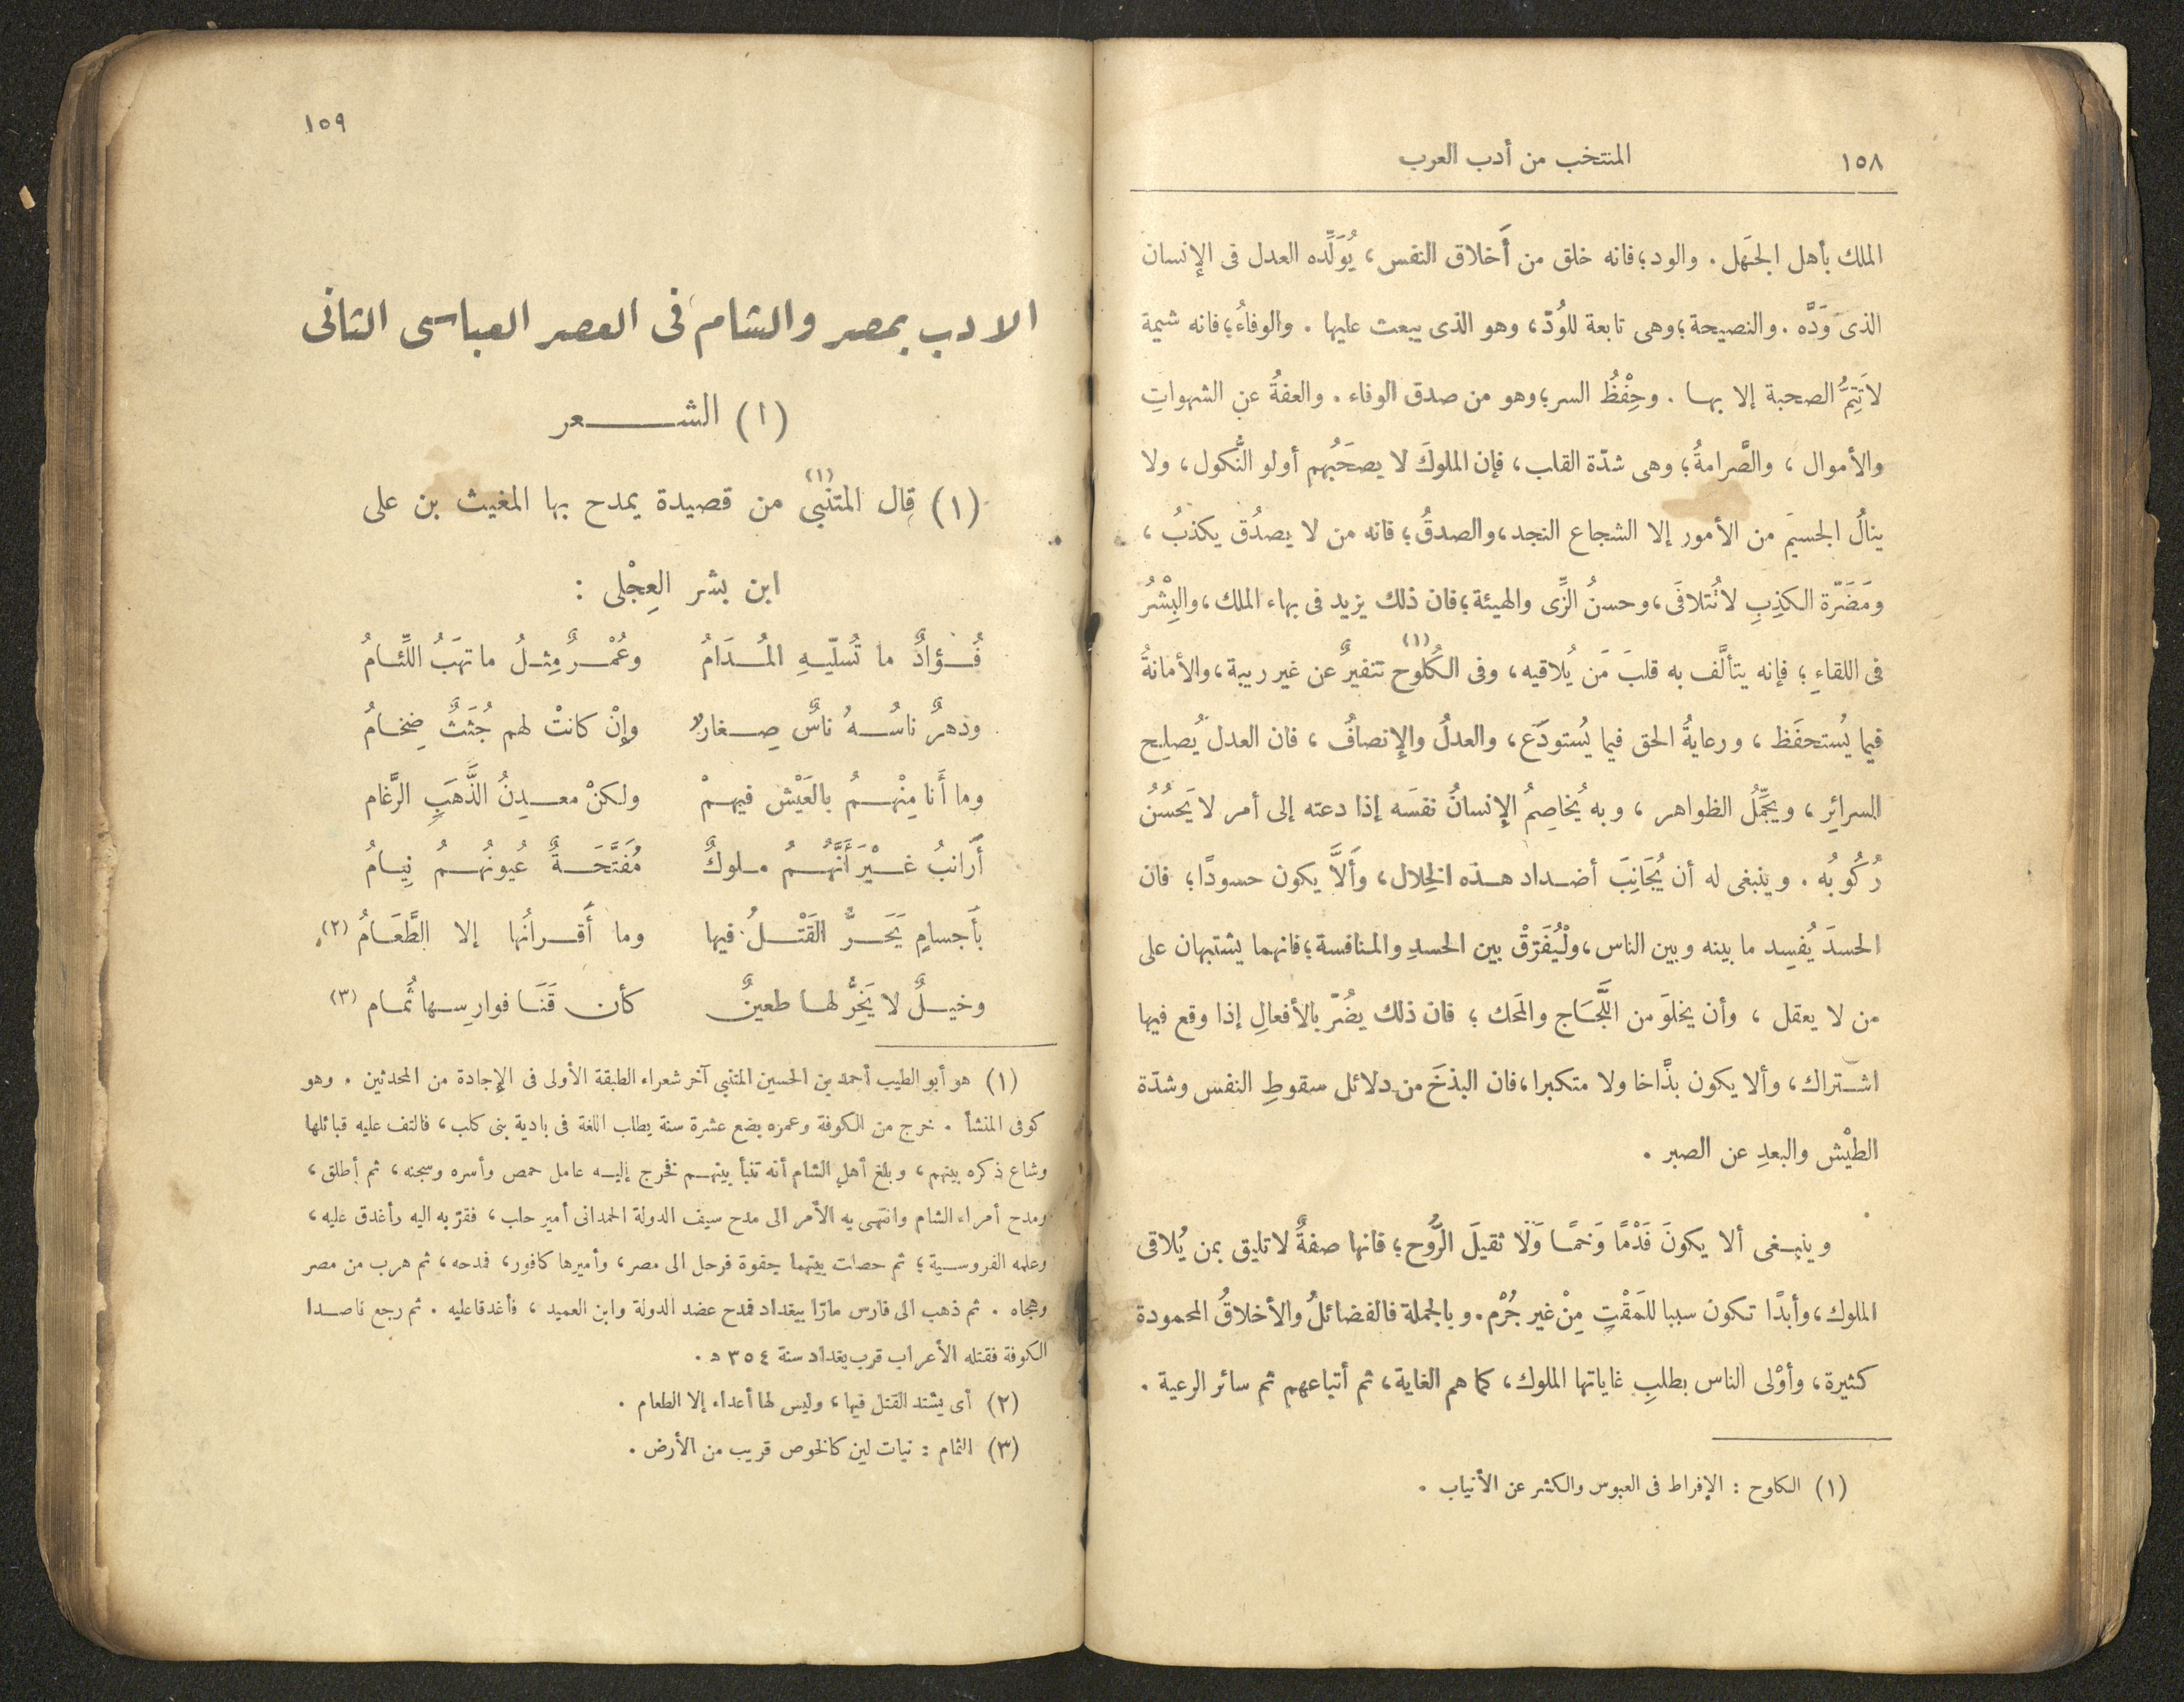 ١٥٨ المنتخب من أدب العرب
الملك بأهل الجَهل . والود ؛ فانه خلق من أَخلاق النفس ، يُوَلِّده العدل فى الإنسان
الذى وَدَّه . والنصيحة ؛ وهى تابعة للوُدّ ، وهو الذى يبعث عليها . والوفاءُ ؛ فانه شيمة
لا تَتِمُّ الصحبة إلا بها . وحِفْظُ السر ؛ وهو من صدق الوفاء . والعفةُ عنِ الشهواتِ
والأموال ، والصَّرامةُ ؛ وهى شدّة القلب ، فإن الملوكَ لا يصحَبُهم أولو النُّكول ، ولا
ينالُ الجسيمَ من الأمور إلا الشجاع النجد ، والصدقُ ؛ فانه من لا يصدُق يكذبُ ،
ومَضَرّة الكذِبِ لا تُتلافَى ، وحسنُ الزِّى والهيئة ؛ فان ذلك يزيد فى بهاء الملك ، والبِشْرُ
فى اللقاءِ ؛ فإنه يتألَّف به قلبَ مَن يُلاقيه ، وفى الكُلوح (١) تنفيرٌ عن غير ريبة ، والأمانةُ
فيما يُستحفَظ ، ورعايةُ الحق فيما يُستودَع ، والعدلُ والإنصافُ ، فان العدلَ يُصلِح
السرائِر ، ويجمِّلُ الظواهر ، وبه يُخاصِمُ الإنسانُ نفسَه إذا دعته إلى أمر لا يَحسُنُ
رُكُوبُه . وينبغى له أن يُجَانِبَ أضداد هذه الخِلال ، وأَلاَّ يكون حسودًا ؛ فان
الحسدَ يُفسِد ما بينه وبين الناس ، ولْيُفَرّقْ بين الحسدِ والمنافسة ؛ فانهما يشتبهان على
من لا يعقل ، وأن يخلوَ من اللَّجَاج والمَحك ؛ فان ذلك يضُرّ بالأفعالِ إذا وقع فيها
اشتراك ، وألا يكون بذَّاخا ولا متكبرا ، فان البذخَ من دلائل سقوطِ النفس وشدّة
الطيْش والبعدِ عن الصبر .
وينبغى ألا يكونَ فَدْمًا وَخمًا وَلَا ثقيلَ الرُّوح ؛ فانها صفةٌ لا تليق بمن يُلاقى
الملوك ، وأبدًا تكون سببا للمَقْتِ مِنْ غير جُرْم . وبالجملة فالفضائلُ والأخلاقُ المحمودة
كثيرة ، وأوْلى الناس بطلبِ غاياتها الملوك ، كما هم الغاية ، ثم أتباعهم ثم سائر الرعية .
(١) الكلوح : الإفراط فى العبوس والكشر عن الأنياب .
١٥٩
الادب بمصر والشام فى العصر العباسى الثانى
(١) الشعر
(١) قال المتنبى (١) من قصيدة يمدح بها المغيث بن على
ابن بشر العِجْلى :
فُؤادٌ ما تُسلّيهِ المُدَامُ وعُمْرٌ مِثلُ ما تهَبُ اللِّئامُ
ودهرٌ ناسُهُ ناسٌ صِغارٌ وإنْ كانتْ لهم جُثَثٌ ضِخامُ
وما أَنا مِنْهمُ بالعَيْش فيهمْ ولكنْ معدِنُ الذَّهَبِ الرَّغام
أَرانبُ غيْرَ أَنَّهُمُ ملوكٌ مُفَتَّحَةٌ عُيونُهمُ نِيامُ
بأَجسامٍ يَحَرُّ القَتْلُ فيها وما أَقرانُها إلا الطَّعَامُ (٢)
وخيلٌ لا يَخِرُّ لها طعينٌ كأن قَنَا فوارِسها ثُمام (٣)
(١) هو أبو الطيب أحمد بن الحسين المتنبى آخر شعراء الطبقة الأولى فى الإجادة من المحدثين . وهو
كوفى المنشأ . خرج من الكوفة وعمره بضع عشرة سنة يطلب اللغة فى بادية بنى كلب ، فالتف عليه قبائلها
وشاع ذكره بينهم ، وبلغ أهل الشام أنه تنبأ بينهم فخرج إليه عامل حمص وأسره وسجنه ، ثم أطلق ،
ومدح أمراء الشام وانتهى به الأمر الى مدح سيف الدولة الحمدانى أمير حلب ، فقرّبه اليه وأغدق عليه ،
وعلمه الفروسية ؛ ثم حصلت بينهما جفوة فرحل الى مصر ، وأميرها كافور ، فمدحه ، ثم هرب من مصر
وهجاه . ثم ذهب الى فارس مارّا ببغداد فمدح عضد الدولة وابن العميد ، فأغدقا عليه . ثم رجع قاصدا
الكوفة فقتله الأعراب قرب بغداد سنة ٣٥٤ ه .
(٢) أى يشتد القتل فيها ، وليس لها أعداء إلا الطعام .
(٣) الثمام : نبات لين كالخوص قريب من الأرض .